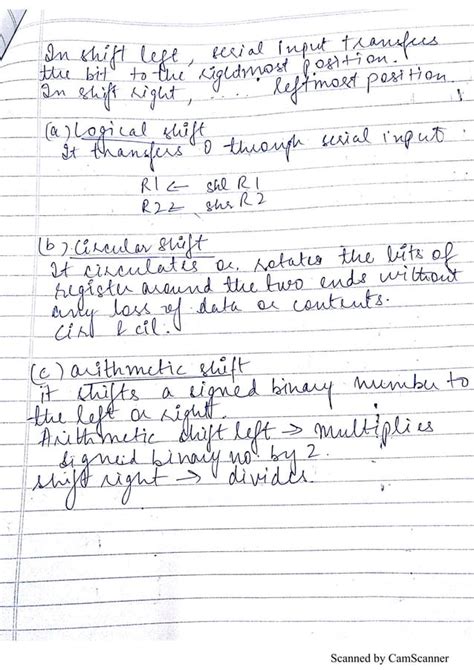 In shift left, serial input transfers
the bit to the rightmost position.
In shift right, ..... leftmost position.
(a) Logical shift
It transfers 0 through serial input
R1 ← shl R1
R2 ← shr R2
(b) Circular shift
It circulates or rotates the bits of
register around the two ends without
any loss of data or contents.
cir & cil.
(c) arithmetic shift
it shifts a signed binary number to
the left or right.
Arithmetic shift left → multiplies
signed binary no by 2.
shift right → divides
Scanned by CamScanner